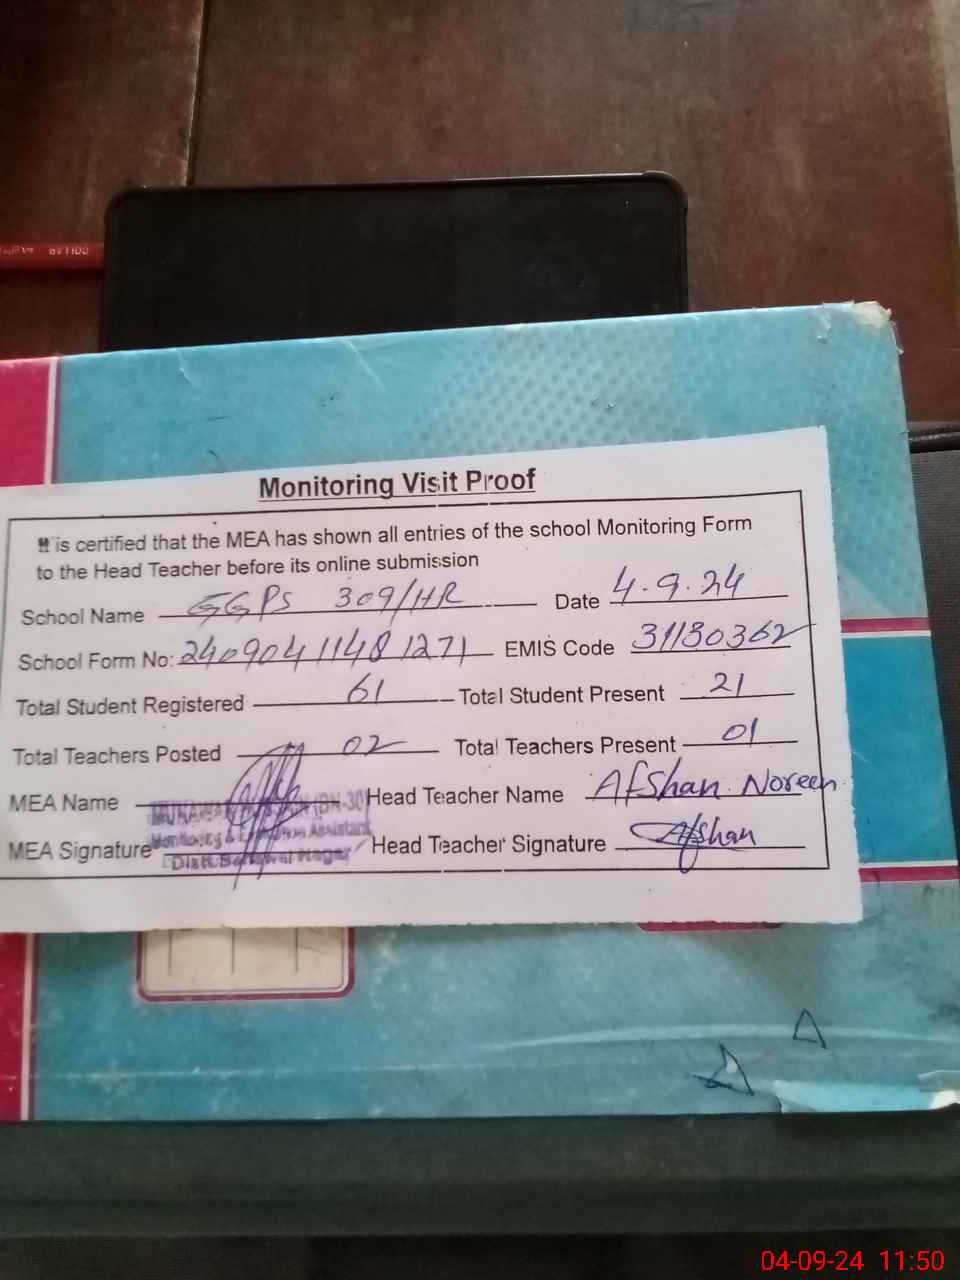 Monitoring Visit Proof
It is certified that the MEA has shown all entries of the school Monitoring Form
to the Head Teacher before its online submission
School Name GGPS 309/HR Date 4.9.24
School Form No: 24090411481271 EMIS Code 31130362
Total Student Registered 61 Total Student Present 21
Total Teachers Posted 02 Total Teachers Present 01
MEA Name Head Teacher Name Afshan Noreen
Monitoring & Assistant
MEA Signature Head Teacher Signature Afshan
04-09-24 11:50